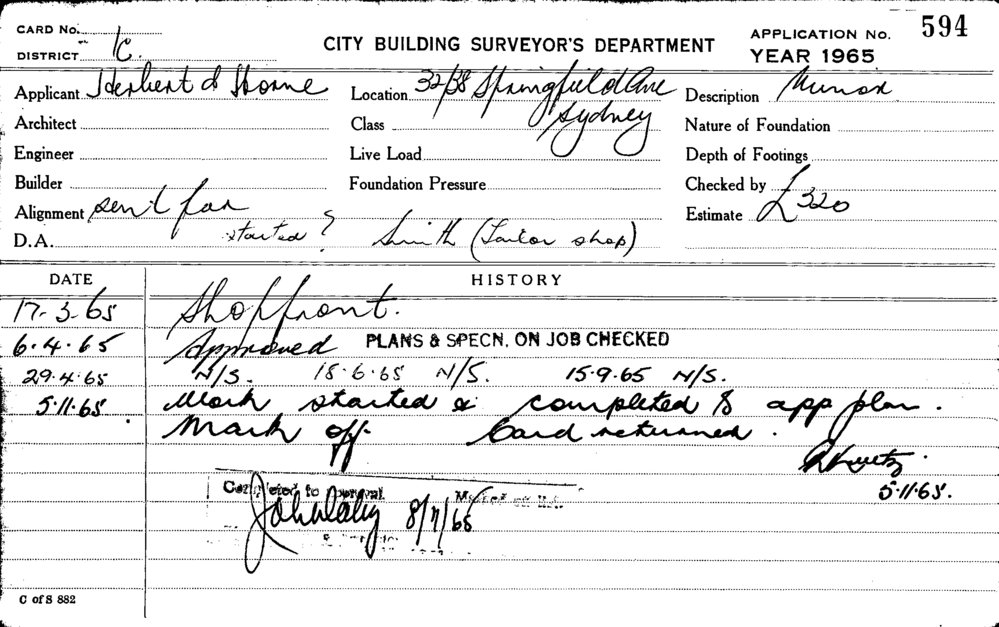 CARD No.
594
APPLICATION No.
CITY BUILDING SURVEYOR'S DEPARTMENT
YEAR 1965
DISTRICT C.
Applicant Herbert & Horne
Location 32/38 Springfield Ave
Sydney
Description Minor
Architect
Class
Nature of Foundation
Engineer
Live Load
Depth of Footings
Builder
Foundation Pressure
Checked by
Alignment sent for
Estimate £320
D.A. started? Smith (Tailor shop)
DATE HISTORY
17-3-65 Shopfront.
6.4.65 Approved PLANS & SPECN. ON JOB CHECKED
29.4.65 N/S. 18.6.65 N/S. 15.9.65 N/S.
5.11.65 Work started & completed to app plan.
Mark off Card returned.
5.11.65.
Completed to Approval
8/11/65
C of S 882